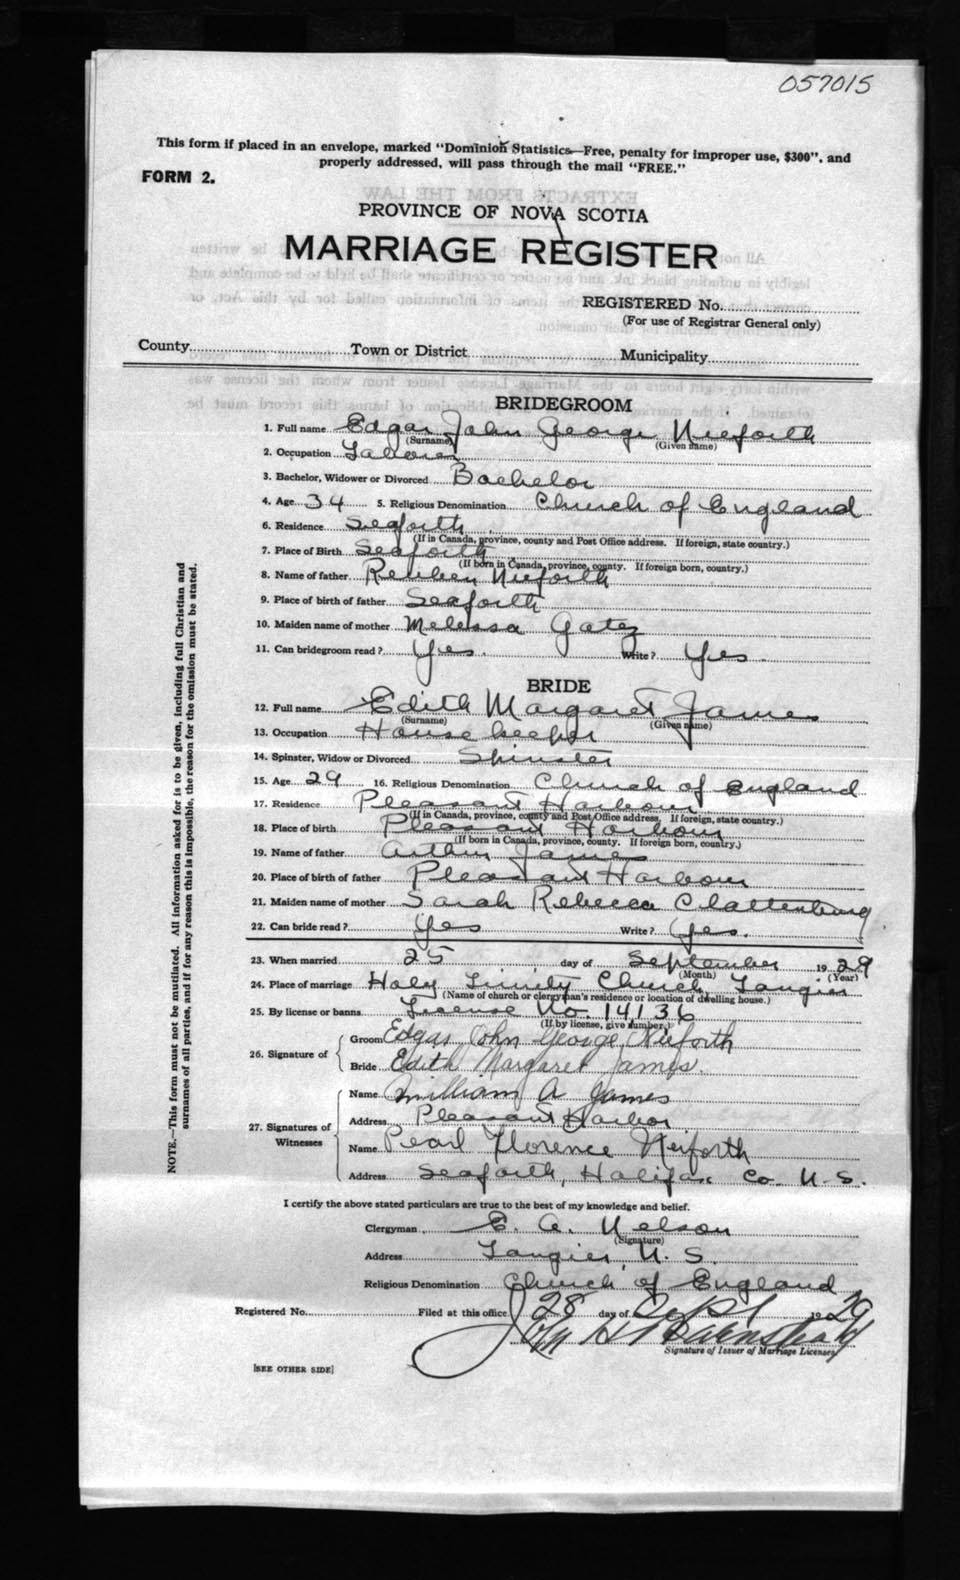 057015
This form if placed in an envelope, marked "Dominion Statistics—Free, penalty for improper use, $300", and
properly addressed, will pass through the mail "FREE."
FORM 2.
PROVINCE OF NOVA SCOTIA
MARRIAGE REGISTER
REGISTERED No.
(For use of Registrar General only)
County Town or District Municipality
BRIDEGROOM
1. Full name Edgar John George Nieforth
(Surname) (Given name)
2. Occupation Laborer
3. Bachelor, Widower or Divorced Bachelor
4. Age 34 5. Religious Denomination Church of England
6. Residence Seaforth
(If in Canada, province, county and Post Office address. If foreign, state country.)
7. Place of Birth Seaforth
(If born in Canada, province, county. If foreign born, country.)
8. Name of father Reuben Nieforth
9. Place of birth of father Seaforth
10. Maiden name of mother Melessa Gatez
11. Can bridegroom read? Yes. Write? Yes.
BRIDE
12. Full name Edith Margaret James
(Surname) (Given name)
13. Occupation House keeper
14. Spinster, Widow or Divorced Spinster
15. Age 29 16. Religious Denomination Church of England
17. Residence Pleasant Harbour
(If in Canada, province, county and Post Office address. If foreign, state country.)
18. Place of birth Pleasant Harbour
(If born in Canada, province, county. If foreign born, country.)
19. Name of father Arthur James
20. Place of birth of father Pleasant Harbour
21. Maiden name of mother Sarah Rebecca Clattenburg
22. Can bride read? Yes Write? Yes.
23. When married 25 day of September 1929
(Month) (Year)
24. Place of marriage Holy Trinity Church, Tangier
(Name of church or clergyman's residence or location of dwelling house.)
25. By license or banns License No. 14136
(If by license, give number.)
26. Signature of Groom Edgar John George Nieforth
Bride Edith Margaret James.
27. Signatures of Witnesses Name William A James
Address Pleasant Harbor
Name Pearl Florence Neiforth
Address Seaforth, Halifax Co. N.S.
I certify the above stated particulars are true to the best of my knowledge and belief.
Clergyman E. A. Nelson
(Signature)
Address Tangier, N.S.
Religious Denomination Church of England
Registered No. Filed at this office 28 day of Sept 1929
Signature of Issuer of Marriage Licenses
[SEE OTHER SIDE]
NOTE.—This form must not be mutilated. All information asked for is to be given, including full Christian and
surnames of all parties, and if for any reason this is impossible, the reason for the omission must be stated.